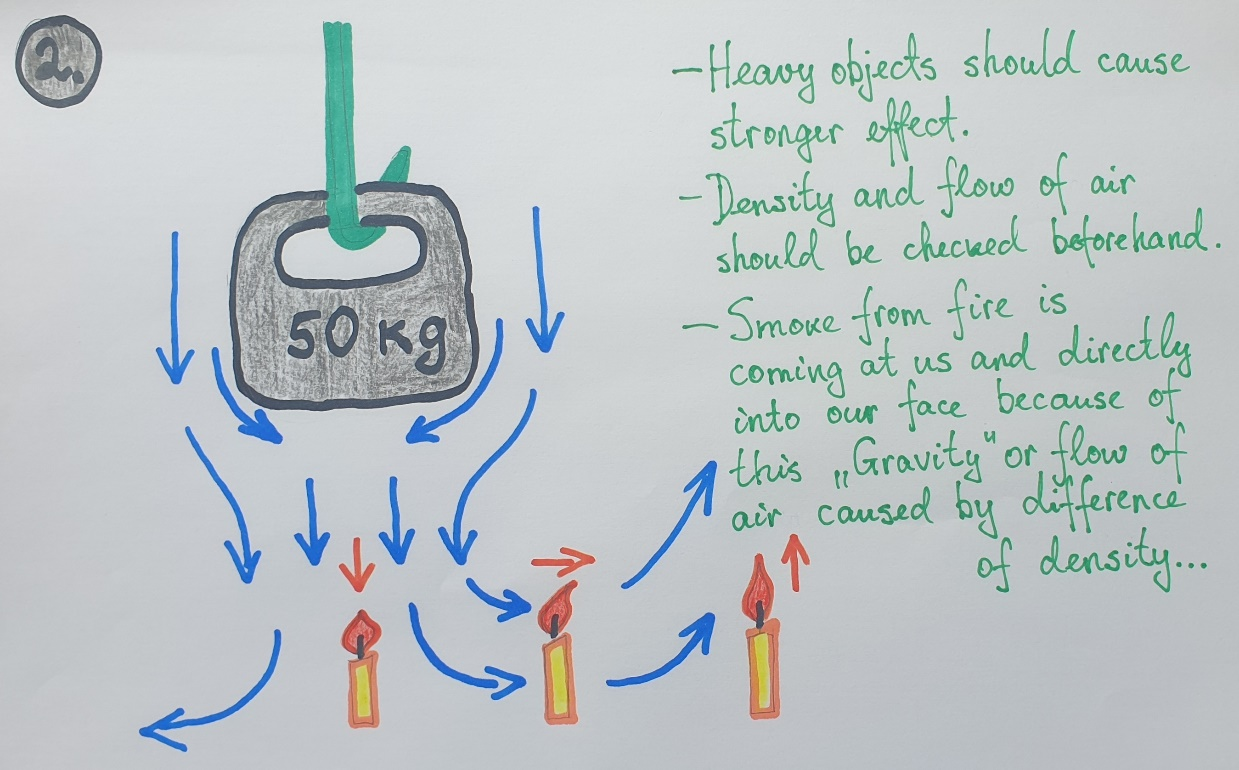 2.
50 kg
- Heavy objects should cause
stronger effect.
- Density and flow of air
should be checked beforehand.
- Smoke from fire is
coming at us and directly
into our face because of
this „Gravity" or flow of
air caused by difference
of density...